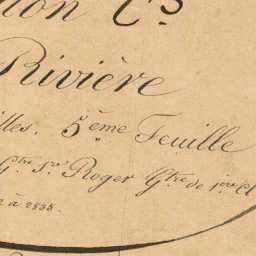 ion C.s
Rivière
illes. 5.ème Feuille
G.tre S.r Roger G.tre de 1.ère cl
à 2835.